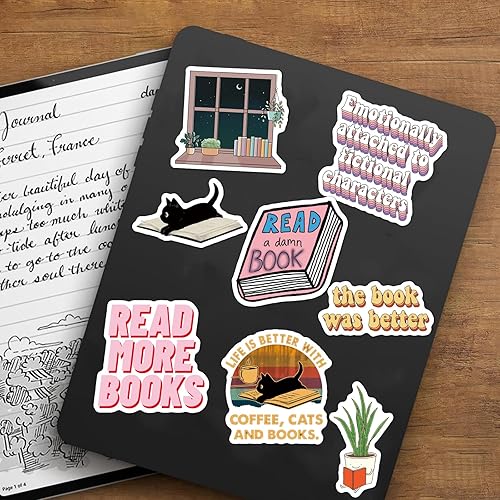 Journal
France
beautiful day of
in many
too much
tide after
to go to the
soul there
Page 1 of 4
Emotionally
attached to
fictional
characters
READ
a damn
BOOK
the book
was better
READ
MORE
BOOKS
LIFE IS BETTER WITH
COFFEE, CATS
AND BOOKS.